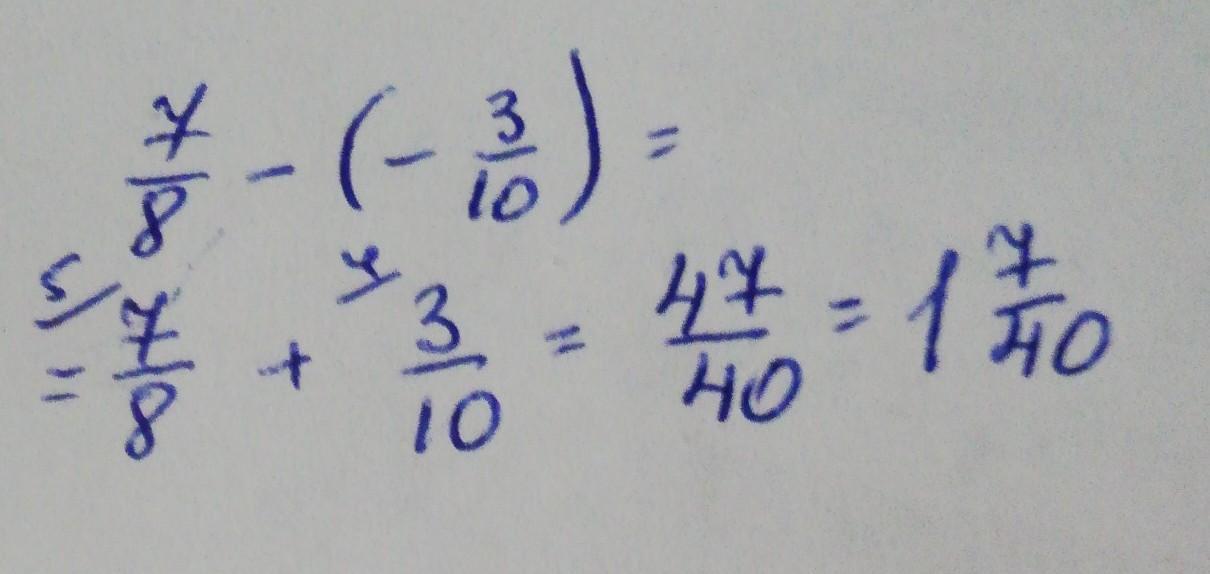 7/8 - (- 3/10) =
= 5/ 7/8 + 4/ 3/10 = 47/40 = 1 7/40